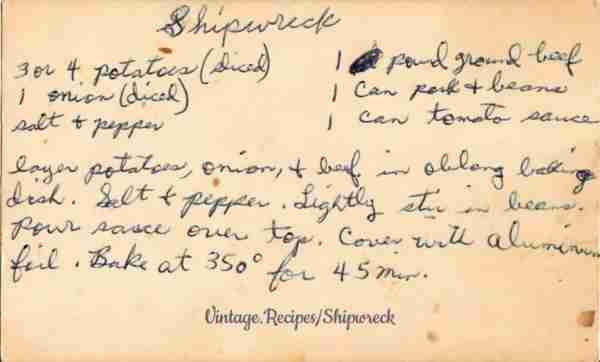 Shipwreck
3 or 4 potatoes (diced)
1 onion (diced)
salt & pepper
1 pound ground beef
1 can pork & beans
1 can tomato sauce
layer potatoes, onion, & beef in oblong baking
dish. Salt & pepper. Lightly stir in beans.
Pour sauce over top. Cover with aluminum
foil. Bake at 350° for 45 min.
Vintage.Recipes/Shipwreck